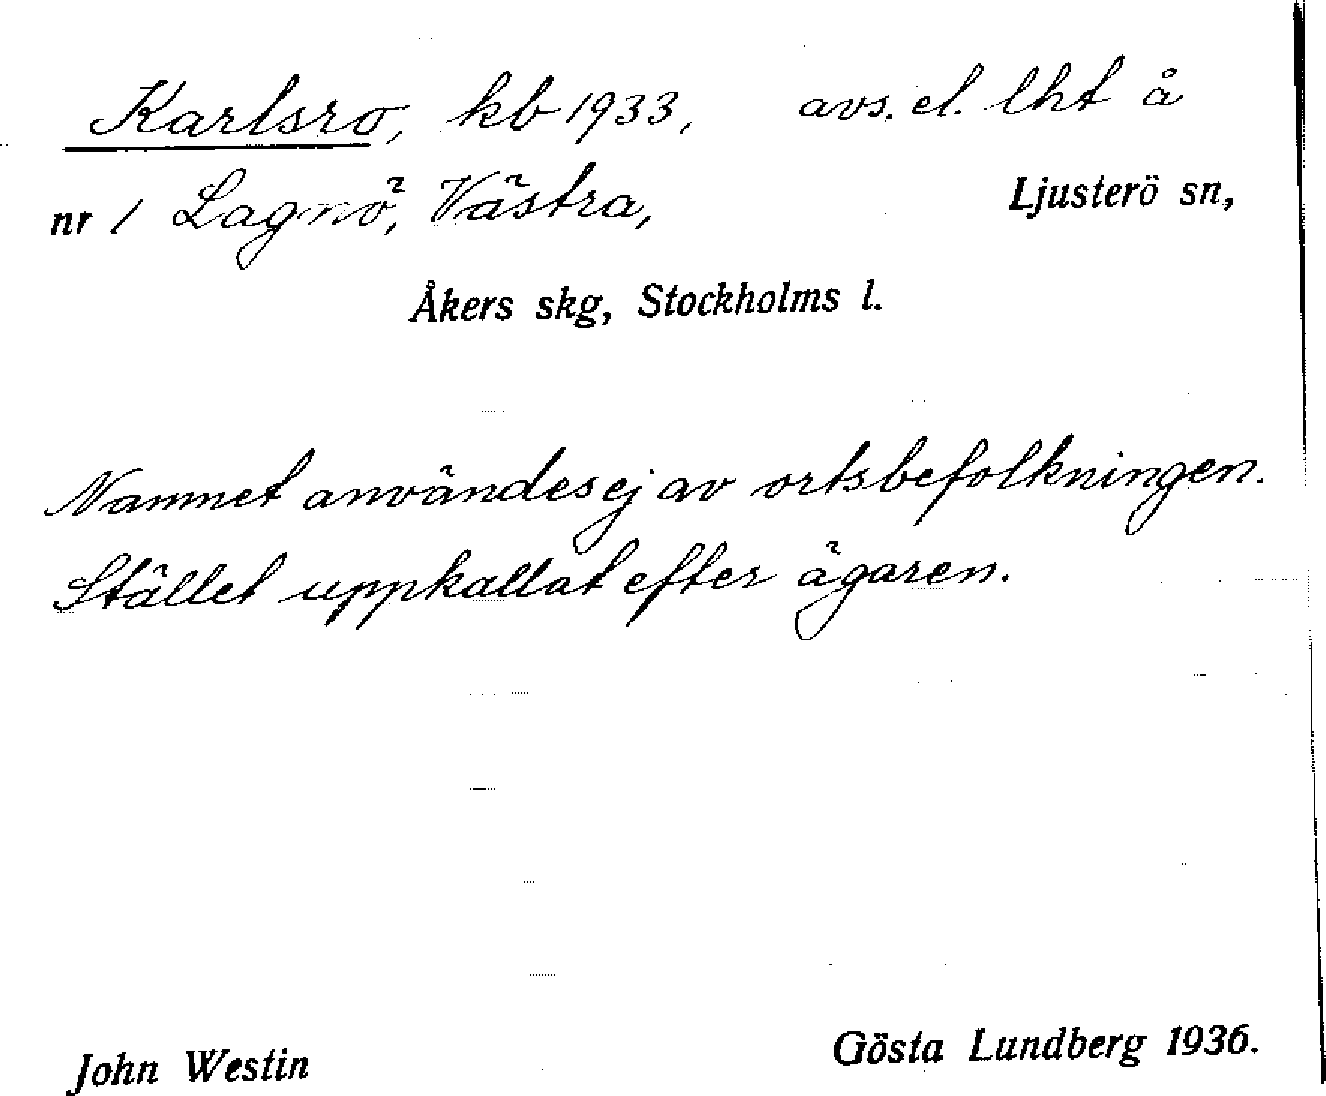 Karlsro, kb 1933, avs. el. lht å
nr 1 Lagnö, Västra, Ljusterö sn,
Åkers skg, Stockholms l.
Namnet användes ej av ortsbefolkningen.
Stället uppkallat efter ägaren.
John Westin Gösta Lundberg 1936.